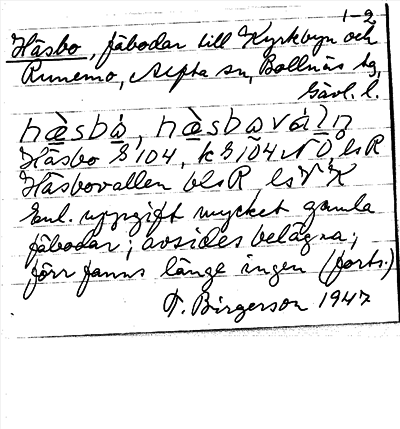 1-2
Häsbo, fäbodar till Kyrkbyn och
Runemo, Alfta sn, Bollnäs tg,
Gävl. l.
hæsbå, hæsbavál̥n
Häsbo G 104, k G 104 NÖ, ls R
Häsbovallen bls R, ls V K
Enl. uppgift mycket gamla
fäbodar; avsides belägna;
förr fanns länge ingen (forts.)
F. Birgerson 1947